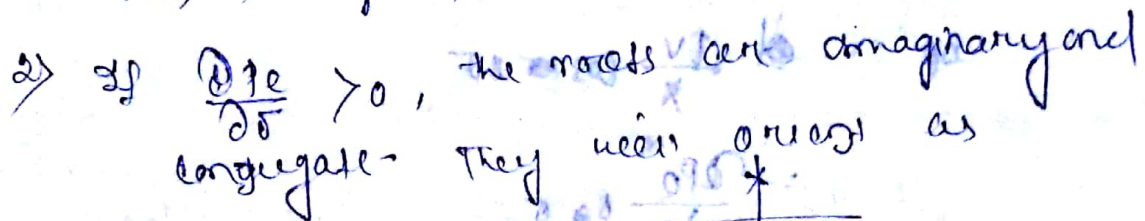 2) If ∂Pe/∂δ > 0, the roots are imaginary and
conjugate - They will as